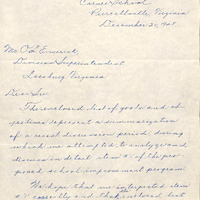 Carver School
Purcellville, Virginia
December 21, 1945
Mr. O. L. Emerick,
Division Superintendent
Leesburg, Virginia
Dear Sir:
The enclosed list of goals and ob-
jectives represent a summarization
of a recent discussion period during
which we attempted to analyze and
discuss in detail item #7 of the pro-
posed school improvement program.
We hope that we interpreted item
#7 correctly and that enclosed list